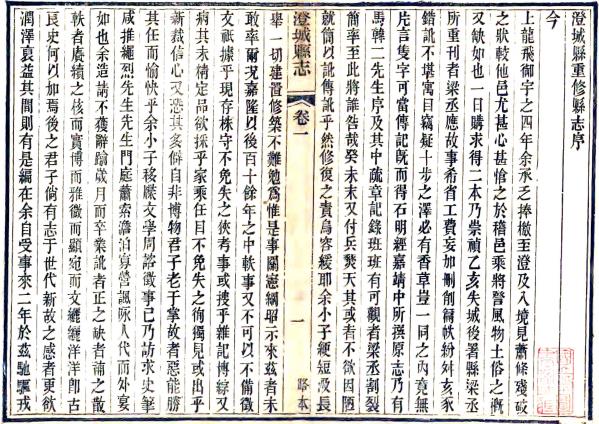 澄城縣重修縣志序
今
上龍飛御宇之四年余承乏捧檄至澄及入境見蕭條殘破
之狀較他邑尤甚心甚愴之於稽邑乘將督風物土俗之槪
又缺如也一日購求得二本乃崇禎乙亥失城後署縣梁丞
所重刊者梁丞應故事希省工費妄加刪創簡帙紛舛亥豕
錯訛不堪寓目竊疑十步之澤必有香草豈一同之內竟無
片言隻字可當傳記旣而得石明經嘉靖中所撰原志乃有
馬韓二先生序及其中疏章記錄班班有可觀者梁丞割裂
簡率至此將誰咎哉癸未末又付兵燹天其或者不欲因陋
就簡以訛傳訛乎然修復之責烏容緩耶余小子綆短汲長
澄城縣志
卷一
一
路本
舉一切建置修築不難勉爲惟是事關憲綱昭示來兹者未
敢率爾况嘉隆以後百十餘年之中軼事又不可以不備徵
文祗據乎現存株守不免失之狹考事或搜乎雜記博綜又
病其未精定品欲採乎家乘任目不免失之徇獨見或出乎
新裁信心又恐其多僻自非博物君子老于掌故者惡能勝
其任而愉快乎余小子移檄文學周諮徵事已乃訪求史筆
咸推繩烈先生先生門庭蕭索澹泊寡營諷咏人代而外宴
如也余造請不獲辭踰歲月而卒業訛者正之缺者補之散
軼者賡續之核而實博而雅微而顯宛而文纚纚洋洋卽古
良史何以如焉後之君子倘有志于世代新故之感者更欲
潤澤裒益其間則有是編在余自受事來二年於兹馳驅戎